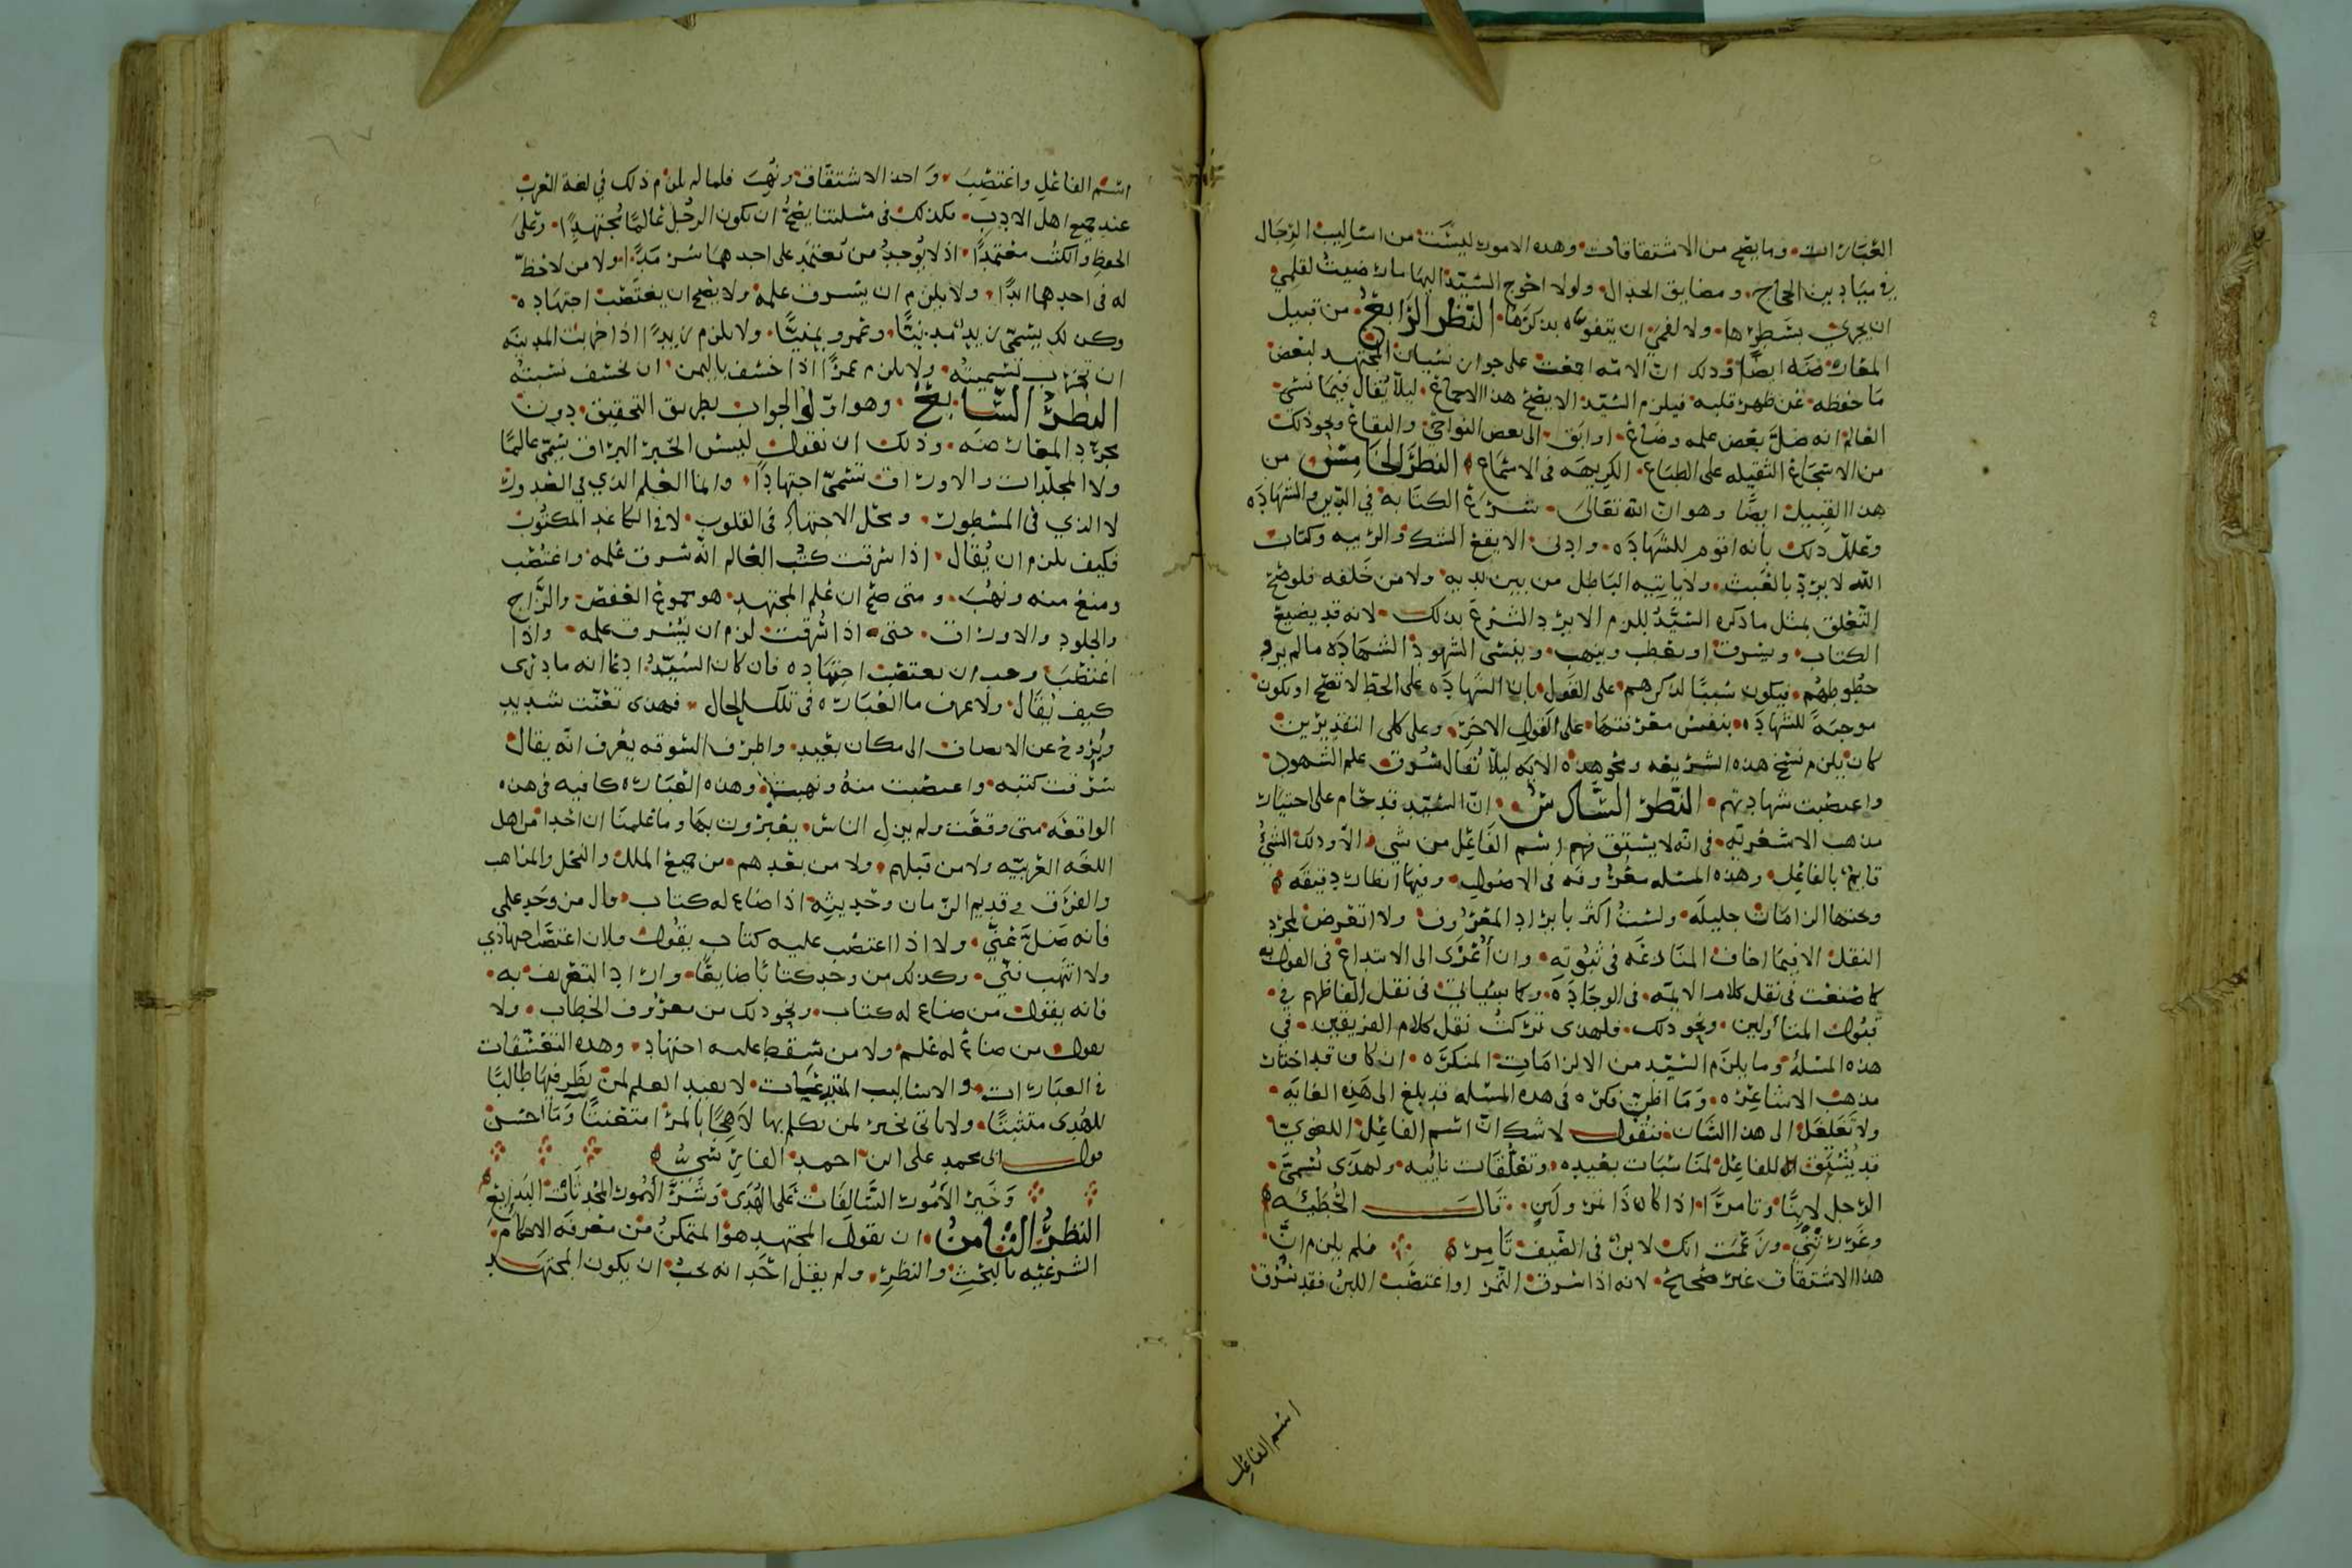 العبارات وما يصح من الاشتقاقات وهذه الامور ليست من اساليب الرجال
في ميادين الحجاج ومضايق الجدال ولولا احوج السيد اليها ما رضيت لقلمي
ان يجري بسطرها ولا لفمي ان يتفوه بذكرها النظر الرابع من قبيل
المعارضه ايضا وذلك ان الامه اجمعت على جواز نسيان المجتهد لبعض
ما حفظه عن ظهر قلبه فيلزم السيد الا يصح هذا الاجماع ليلا يقال فيما نسي
العالم انه ضل بعض علمه وضاع او ابق الى بعض النواحي والبقاع ونحو ذلك
من الاسجاع الثقيله على الطباع الكريهه في الاسماع النظر الخامس من
هذا القبيل ايضا وهو ان الله تعالى شرع الكتابة في الدين والشهاده
وعلل ذلك بانه اقوم للشهاده وادنى الا يقع الشك والريبه وكتاب
الله لا يرد بالعبث ولا ياتيه الباطل من بين يديه ولا من خلفه فلو صح
التعلق بمثل ما ذكره السيد للزم الا يرد الشرع بذلك لانه قد يضيع
الكتاب ويسرق او يغصب وينهب وينسى الشهود الشهاده ما لم يروا
خطوطهم فيكون سببا لذكرهم على القول بان الشهاده على الخط لا تصح او يكون
موجبة للشهاده بنفس معرفتها على القول الاخر وعلى كلى التقديرين
كان يلزم نسخ هذه الشريعه ونحو هذه الايه ليلا يقال سرق علم الشهود
واغتصبت شهادتهم النظر السادس ان السيد قد حام على اختيار
مذهب الاشعريه في انه لا يشتق اسم الفاعل من شي الا وذلك الشي
قايم بالفاعل وهذه المسله معروفه في الاصول وفيها انظار دقيقه
وتحتها الزامات جليله ولست اكثر بايراد المعروف ولا اتعرض لمجرد
النقل الا فيما اخاف المنازعه في ثبوته وان اعزى الى الابتداع في القول به
كما صنعت في نقل كلام الايمه في الوجاده وكما سياتي في نقل الفاظهم في
قبول المتاولين ونحو ذلك فلهذا تركت نقل كلام الفريقين في
هذه المسله وما يلزم السيد من الالزامات المنكره ان كان قد اختار
مذهب الاشاعره وما اظن فكره في هذه المسله قد بلغ الى هذه الغايه
ولا تغلغل الى هذا الشان فنقول لا شك ان اسم الفاعل اللغوي
قد يشتق للفاعل لمناسبات بعيده وتعلقات نائيه ولهذا يسمى
الرجل لابنا وتامرا اذا كان ذا تمر ولبن قال الحطيئه
وغررتني وزعمت انك لابن في الصيف تامر فلم يلزم ان
هذا الاشتقاق غير صحيح لانه اذا سرق التمر او اغتصب اللبن فقد سرق
اسم الفاعل
اسم الفاعل واغتصب واخذ الاشتقاق ونهب فلما لم يلزم ذلك في لغة العرب
عند جميع اهل الادب فكذلك في مسلتنا يصح ان يكون الرجل عالما مجتهدا وعلى
الحفظ والكتب معتمدا اذ لا يوجد من يعتمد على احدهما سرمدا ولا من لا حظ
له في احدهما ابدا ولا يلزم ان يسرق علمه ولا يصح ان يغتصب اجتهاده
وكذلك يسمى زيد مدنيا وعمرو يمنيا ولا يلزم زيدا اذا خربت المدينه
ان تخرب تسميته ولا يلزم عمرا اذا خسف باليمن ان تخسف نسبته
النظر السابع وهو اول الجواب بطريق التحقيق دون
مجرد المعارضه وذلك ان نقول ليس الحبر البراق يسمى عالما
ولا المجلدات والاوراق تسمى اجتهادا وانما العلم الذي في الصدور
لا الذي في المسطور ومحل الاجتهاد في القلوب لا في الكاغد المكتوب
فكيف يلزم ان يقال اذا سرقت كتب العالم انه سرق علمه واغتصب
ومنع منه ونهب ومتى صح ان علم المجتهد هو مجموع العفص والزاج
والجلود والاوراق حتى اذا سرقت لزم ان يسرق علمه واذا
اغتصب وجب ان يغتصب اجتهاده فان كان السيد ادعا انه ما درى
كيف يقال ولا عرف ما العباره في تلك الحال فهذا تعنت شديد
ونزوح عن الانصاف الى مكان بعيد واطرف السوقه يعرف انه يقال
سرقت كتبه واغتصبت منه ونهبت وهذه العباره كافيه في هذه
الواقعه متى وقعت ولم يزل الناس يعبرون بها وما علمنا ان احدا من اهل
اللغه العربيه ولا من قبلهم ولا من بعدهم من جميع الملل والنحل والمذاهب
والفرق في قديم الزمان وحديثه اذا ضاع له كتاب قال من وجد علمي
فانه ضل عني ولا اذا اغتصب عليه كتاب يقول فلان اغتصب اجتهادي
ولا انتهب مني وكذلك من وجد كتابا ضايعا واراد التعريف به
فانه يقول من ضاع له كتاب ونحو ذلك من معروف الخطاب ولا
يقول من ضاع له علم ولا من سقط عليه اجتهاد وهذه التعسفات
في العبارات والاساليب لا يفيد العلم لمن نظر فيها طالبا
للهدى متثبتا ولا ياتي بخير لمن تكلم بها لاهجا بالمرا متعنتا وما احسن
قول ابي محمد علي ابن احمد الفارسي
وخير الامور السالفات على الهدى وشر الامور المحدثات البدايع
النظر الثامن ان يقول المجتهد هو المتمكن من معرفه الاحكام
الشرعيه بالبحث والنظر ولم يقل احد انه يجب ان يكون المجتهد